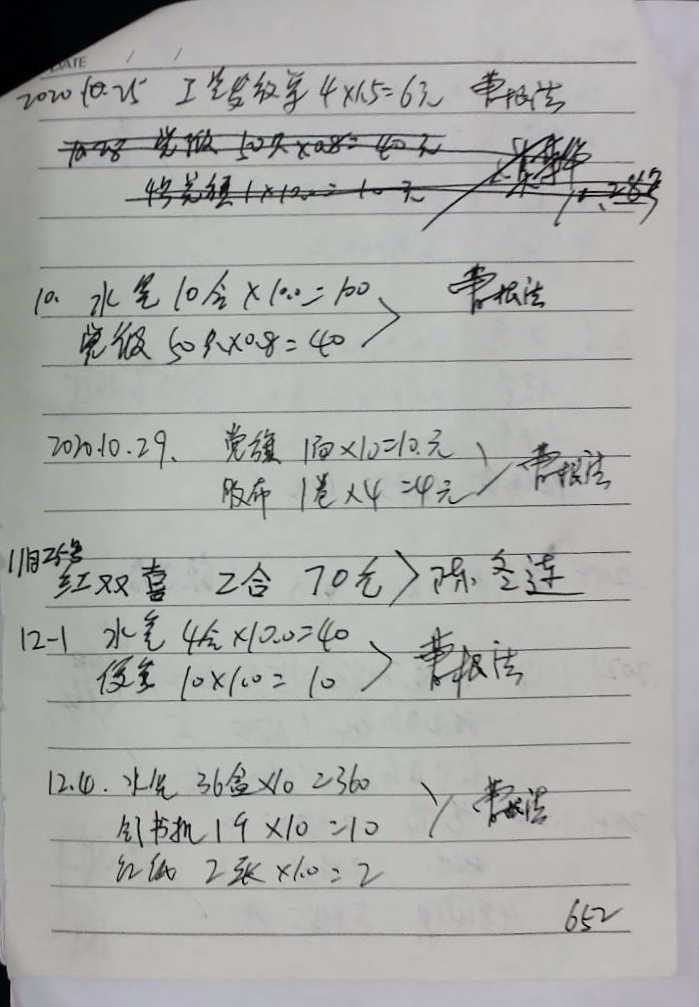 DATE / /
2020.10.25 工 4×1.5=6元 曹根法
10.28 党徽 50只×0.8=40元
4号党旗1×10.0=10元
10. 水笔 10合×10.0=100 曹根法
党徽 50只×0.8=40
2020.10.29. 党旗 1面×10=10.元
胶布 1卷×4=4元 曹根法
11月25号
红双喜 2合 70元 陈冬连
12-1 水笔 4合×10.0=40
10×1.0=10 曹根法
12.4. 水笔 36盒×10=360
钉书机 1个×10=10 曹根法
红纸 2张×1.0=2
652